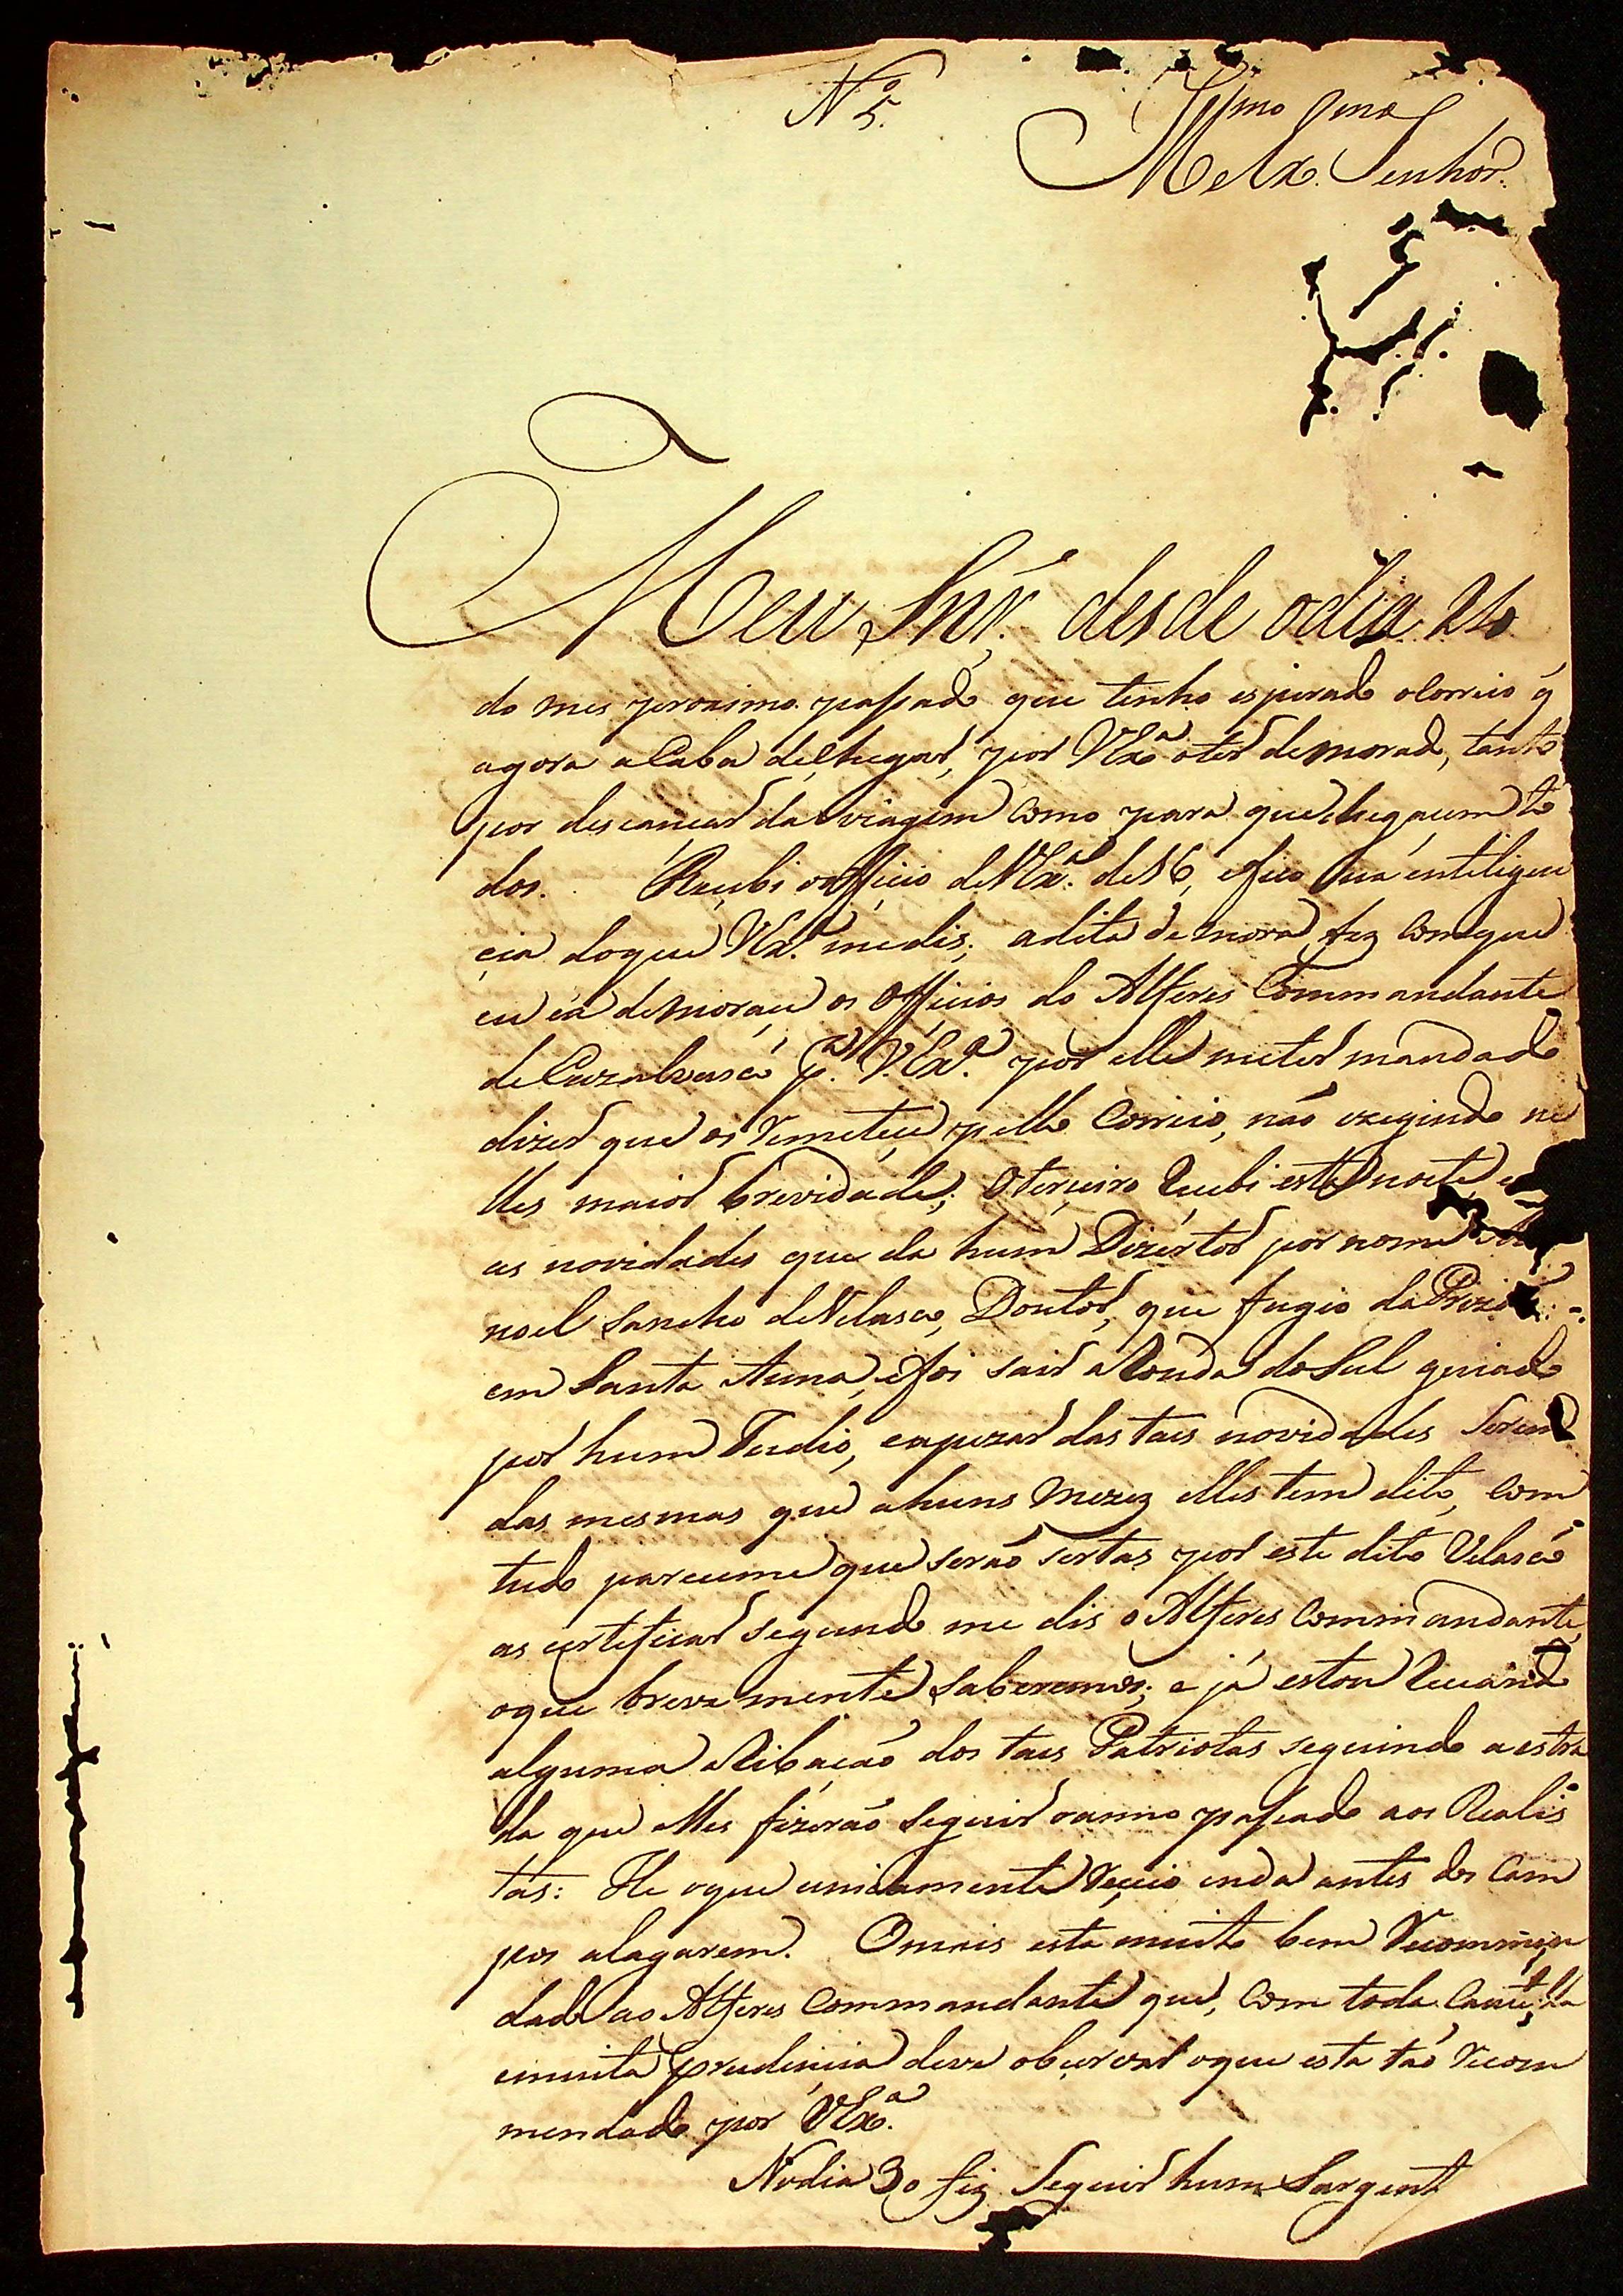 Nº 5.
Illmo Exmo
Senhor.
Meu Snr. desde odia 24
do mes proximo passado que tenho esperado oCorreio q̃
agora aCaba deChegar, por VExª oter demorado, tanto
por descançar da viagem Como para que chegacem to
dos. Recubi oofficio deVExª. de16, efico Sua intiligen
cia doque VExª. medis; adita demora fez Com que
eu cá demorace os Officios do Alferes Commandante
de Cazalvasco pª. V.Exª. por elle meter mandado
dizer que os remetece pello Correio, não exegindo ne
lles maior brevidade; Oterceiro recebi esta noite, e
as novidades que da hum Dizertor por nome Ma
noel Sancho deVelasco, Doutor, que fugio da Prizão
em Santa Anna, efoi sair aRonda do Sul guiado
por hum Indio, eapezar das tais novidades Serem
das mesmas que ahuns mezez elles tem dito, Com
tudo pareceme que serão sertas por este dito Velasco
as certeficar segundo me dis o Alferes Commandante,
oque breve mente Saberemos; e já estou reciando
alguma aRibação dos tais Patriotas seguindo a estra
da que elles fizerão Seguir oanno passado aos Realis
tas: He oque unicamente reçeio inda antes dos Cam
pos alagarem. Omais está muito bem recommen
dado ao Alferes Commandante que, Com toda Cautella
emuita prudencia deve obcervar oque esta tão recom
mendado por VExª.
Nodia 30 fiz Seguir hum Sargento